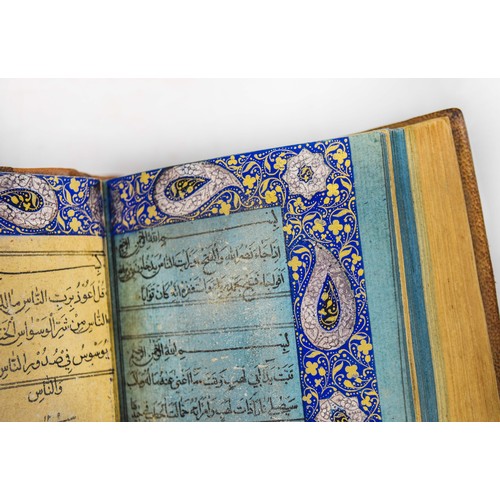 بسم الله الرحمن الرحيم
اذا جاء نصر الله والفتح ورايت الناس يدخلون
افواجا فسبح بحمد ربك واستغفره انه كان توابا
بسم الله الرحمن الرحيم
تبت يدا ابي لهب وتب ما اغنى عنه ماله وما
سيصلى نارا ذات لهب وامراته حمالة الحطب في
بس
قل اعوذ برب الناس ملك
الناس من شر الوسواس الخن
يوسوس في صدور الناس
والناس